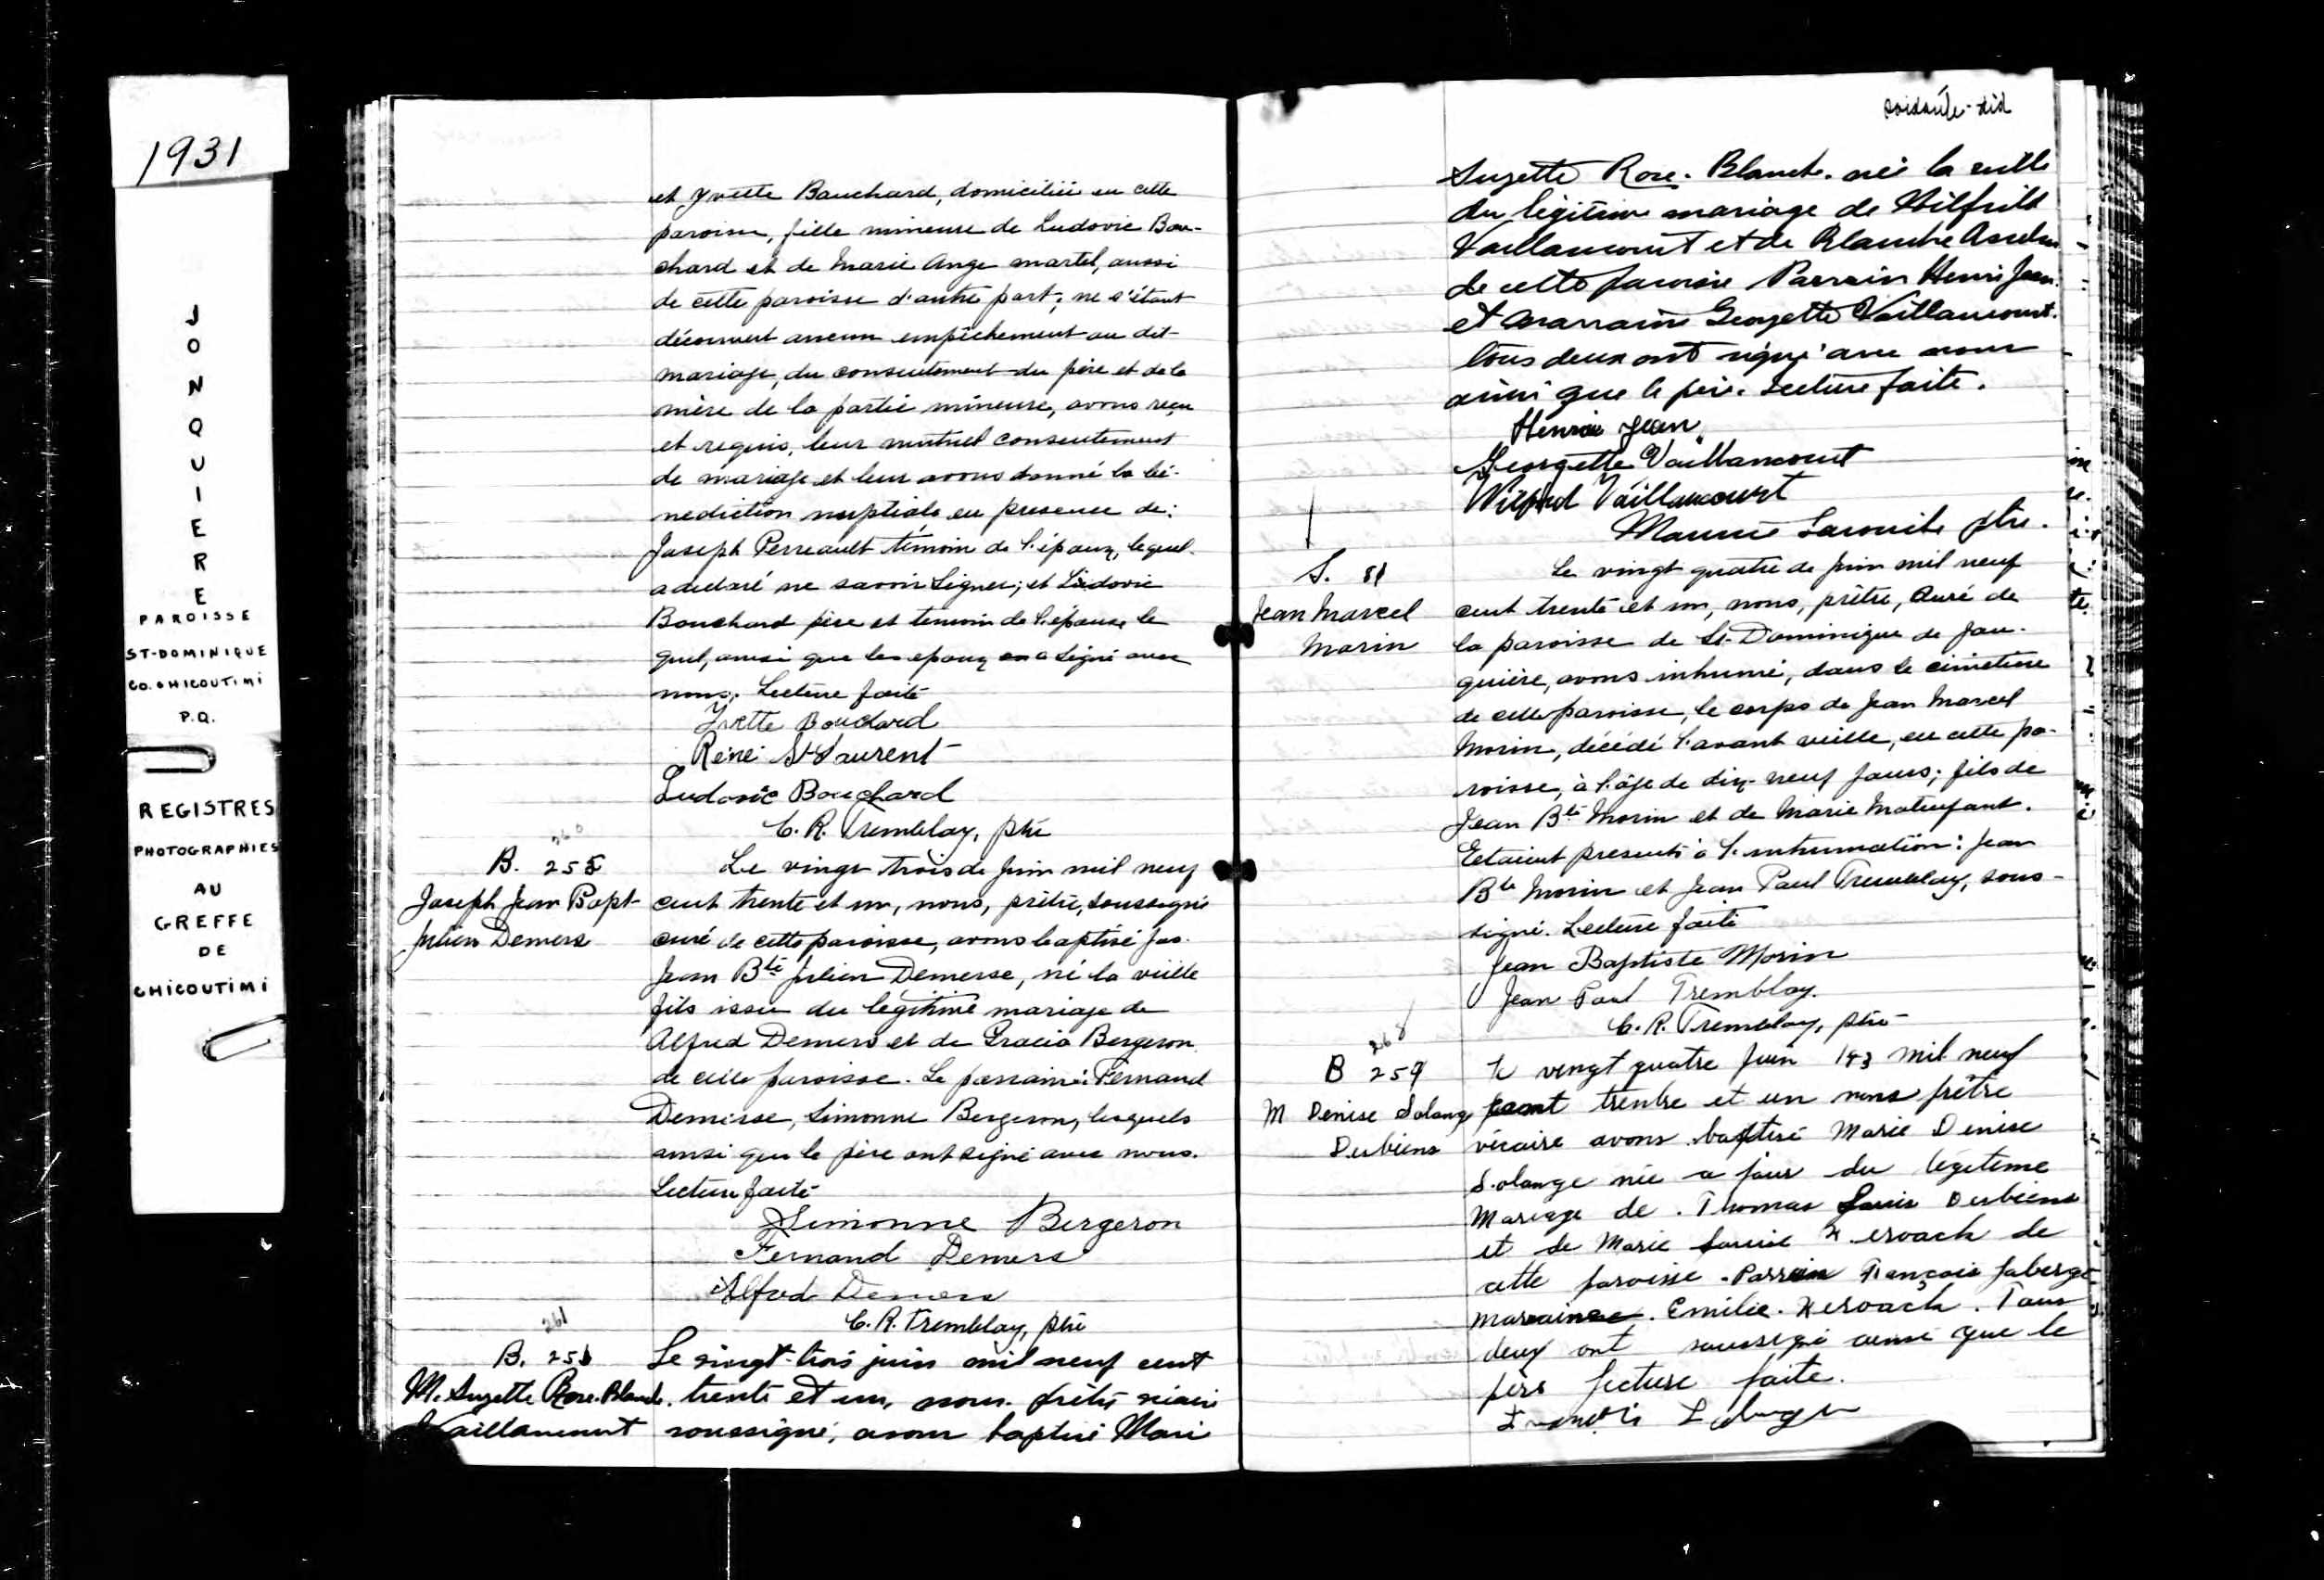 1931
JONQUIERE
PAROISSE
ST-DOMINIQUE
CO. CHICOUTIMI
P.Q.
REGISTRES
PHOTOGRAPHIES
AU
GREFFE
DE
CHICOUTIMI
et Yvette Bouchard, domiciliée en cette
paroisse, fille mineure de Ludovic Bou-
chard et de Marie Ange Martel, aussi
de cette paroisse d'autre part; ne s'étant
découvert aucun empêchement au dit
mariage, du consentement du père et de la
mère de la partie mineure, avons reçu
et requis, leur mutuel consentement
de mariage et leur avons donné la bé-
nediction nuptiale en presence de:
Joseph Perreault témoin de l'époux, lequel
a déclaré ne savoir signer; et Ludovic
Bouchard père et temoin de l'épouse le
quel, ainsi que les epoux a signé avec
nous. Lecture faite
Yvette Bouchard
René St-Laurent
Ludovic Bouchard
C. R. Tremblay, ptre
260
B. 255
Joseph Jean Bapt
Julien Demers
Le vingt trois de Juin mil neuf
cent trente et un, nous, prêtre, soussigné
curé de cette paroisse, avons baptisé Jos.
Jean Bte Julien Demerse, né la veille
fils issu du légitime mariage de
Alfred Demers et de Gracia Bergeron
de cette paroisse. Le parrain: Fernand
Demerse, Simonne Bergeron, lesquels
ainsi que le père ont signé avec nous.
Lecture faite
Simonne Bergeron
Fernand Demers
Alfred Demers
C. R. Tremblay, ptre
261
B. 25
M. Suzette Rose-Blanche
Vaillancourt
Le vingt-trois juin mil neuf cent
trente et un, nous prêtre vicaire
soussigné, avons baptisé Marie
soixante-dix
Suzette Rose-Blanche née la veille
du légitime mariage de Wilfrild
Vaillancourt et de Blanche
de cette paroisse Parrain Henri Jean
et marraine Georgette Vaillancourt.
tous deux ont signé avec nous
ainsi que le père. Lecture faite.
Henri Jean
Georgette Vaillancourt
Wilfrid Vaillancourt
Maurice Larouche ptre.
S. 81
Jean Marcel
Morin
Le vingt quatre de Juin mil neuf
cent trente et un, nous, prêtre, Curé de
la paroisse de St-Dominique de Jon-
quière, avons inhumé, dans le cimetière
de cette paroisse, le corps de Jean Marcel
Morin, décédé l'avant veille, en cette pa-
roisse, à l'âge de dix-neuf jours; fils de
Jean Bte Morin et de Marie Malenfant.
Etaient presents à l'inhumation: Jean
Bte Morin et Jean Paul Tremblay, sous-
signé. Lecture faite
Jean Baptiste Morin
Jean Paul Tremblay.
C. R. Tremblay, ptre
B 259
M Denise Solange
Desbiens
le vingt quatre Juin 193 mil neuf
cent trentre et un nous prêtre
vicaire avons baptisé Marie Denise
Solange née a jour du légitime
Mariage de Thomas Louis Desbiens
et de Marie Louise Keroack de
cette paroisse. Parrain François Laberge
marraine Emilie Keroack. Tous
deux ont soussigné ainsi que le
père lecture faite.
François Laberge